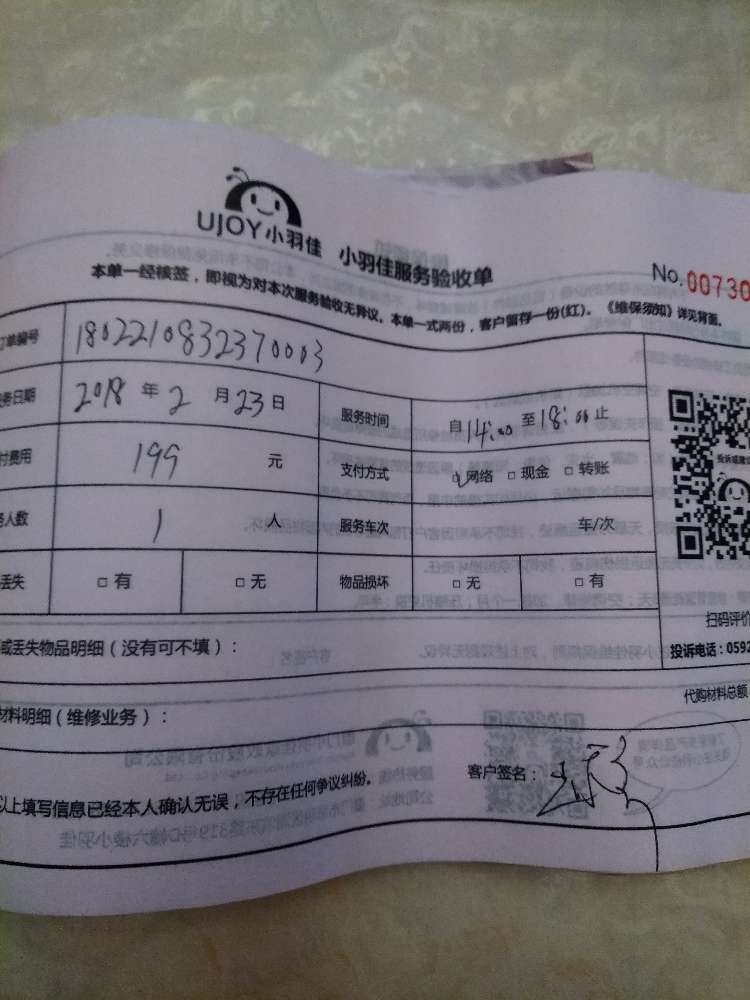 UJOY小羽佳 小羽佳服务验收单
No.00730
本单一经核签，即视为对本次服务验收无异议。本单一式两份，客户留存一份(红)。《维保须知》详见背面。
订单编号 1802210832370003
务日期 2018 年 2 月 23 日 服务时间 自 14:00 至 18:00 止
付费用 199 元 支付方式 网络 □ 现金 □ 转账
人数 1 人 服务车次 车/次
丢失 □ 有 □ 无 物品损坏 □ 无 □ 有
投诉或建议
扫码评价
投诉电话：0592
或丢失物品明细（没有可不填）：
代购材料总额
材料明细（维修业务）：
以上填写信息已经本人确认无误，不存在任何争议纠纷。
客户签名：